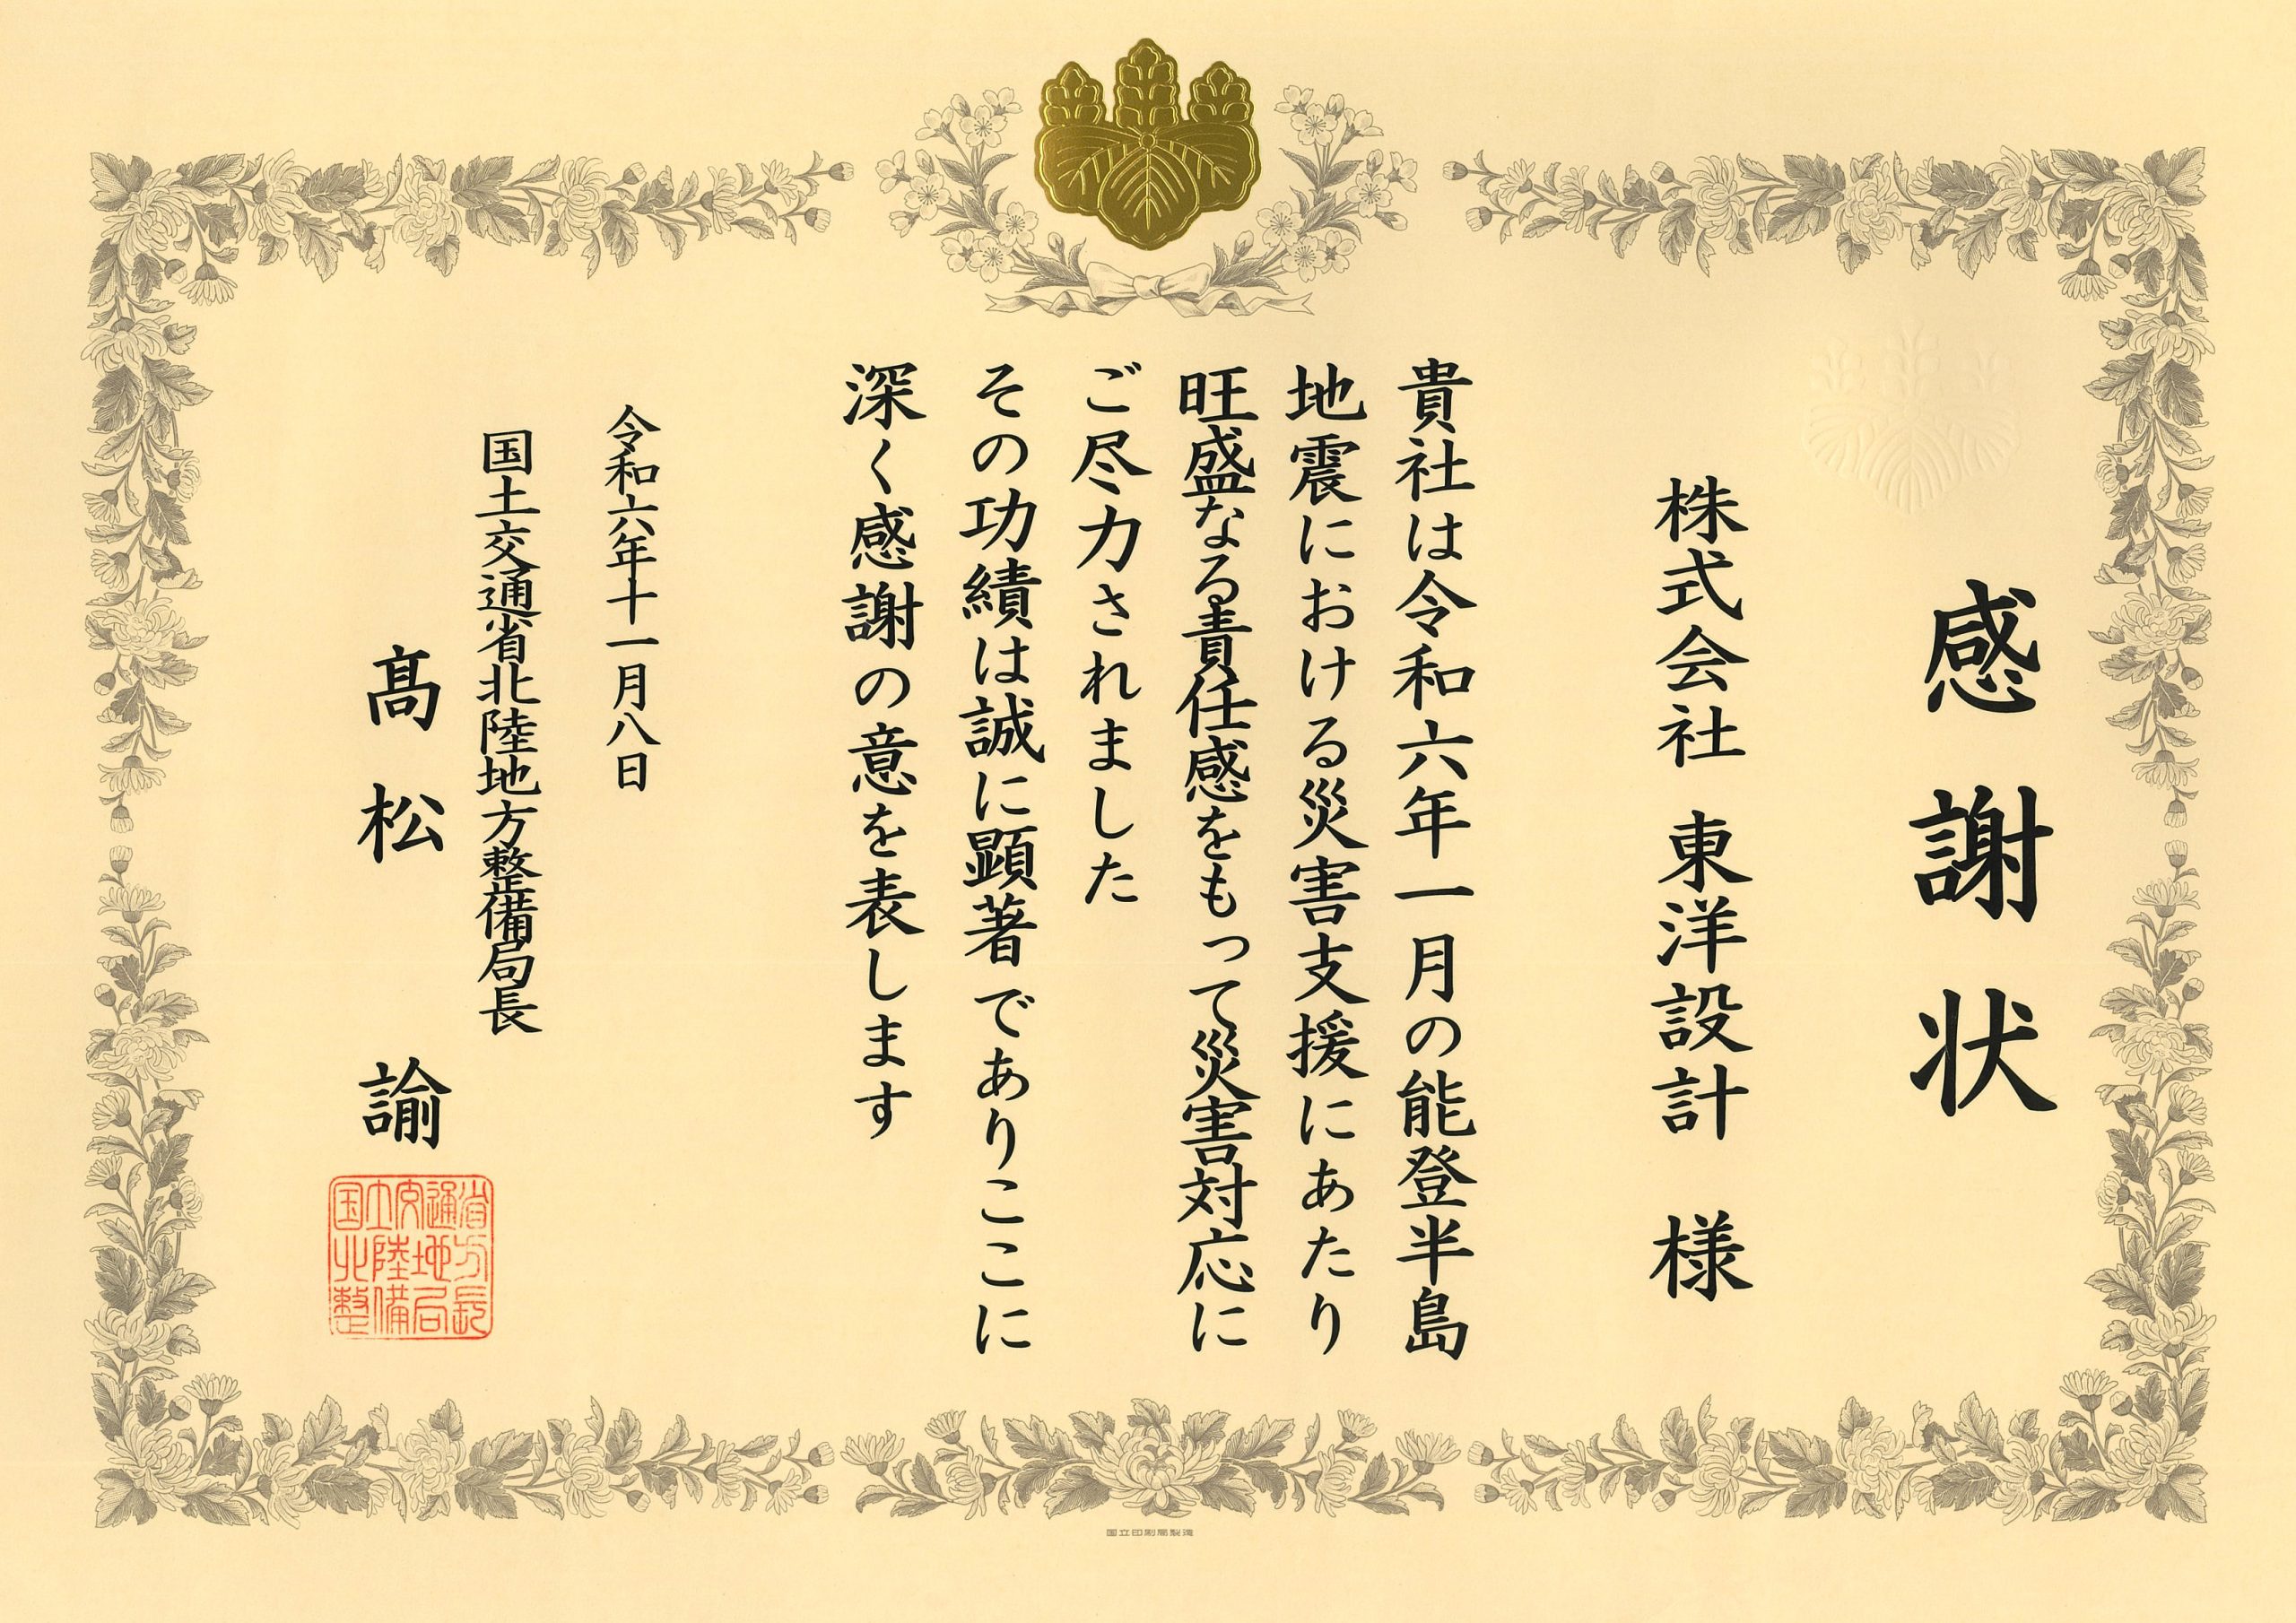 感謝状
株式会社 東洋設計 様
貴社は令和六年一月の能登半島
地震における災害支援にあたり
旺盛なる責任感をもって災害対応に
ご尽力されました
その功績は誠に顕著でありここに
深く感謝の意を表します
令和六年十一月八日
国土交通省北陸地方整備局長
髙松 諭
国土交通省
北陸地方
整備局長
国立印刷局製造